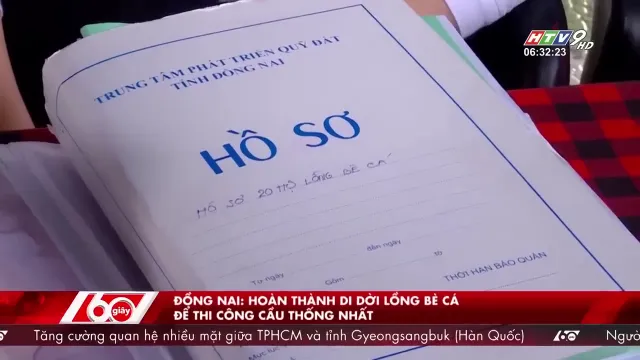 HTV9 HD
06:32:23
TRUNG TÂM PHÁT TRIỂN QUỸ ĐẤT
TỈNH ĐỒNG NAI
HỒ SƠ
HỒ SƠ 20 HỘ LỒNG BÈ CÁ
Từ ngày đến ngày
Gồm tờ
THỜI HẠN BẢO QUẢN
60 giây
ĐỒNG NAI: HOÀN THÀNH DI DỜI LỒNG BÈ CÁ
ĐỂ THI CÔNG CẦU THỐNG NHẤT
Tăng cường quan hệ nhiều mặt giữa TPHCM và tỉnh Gyeongsangbuk (Hàn Quốc) 60 Người